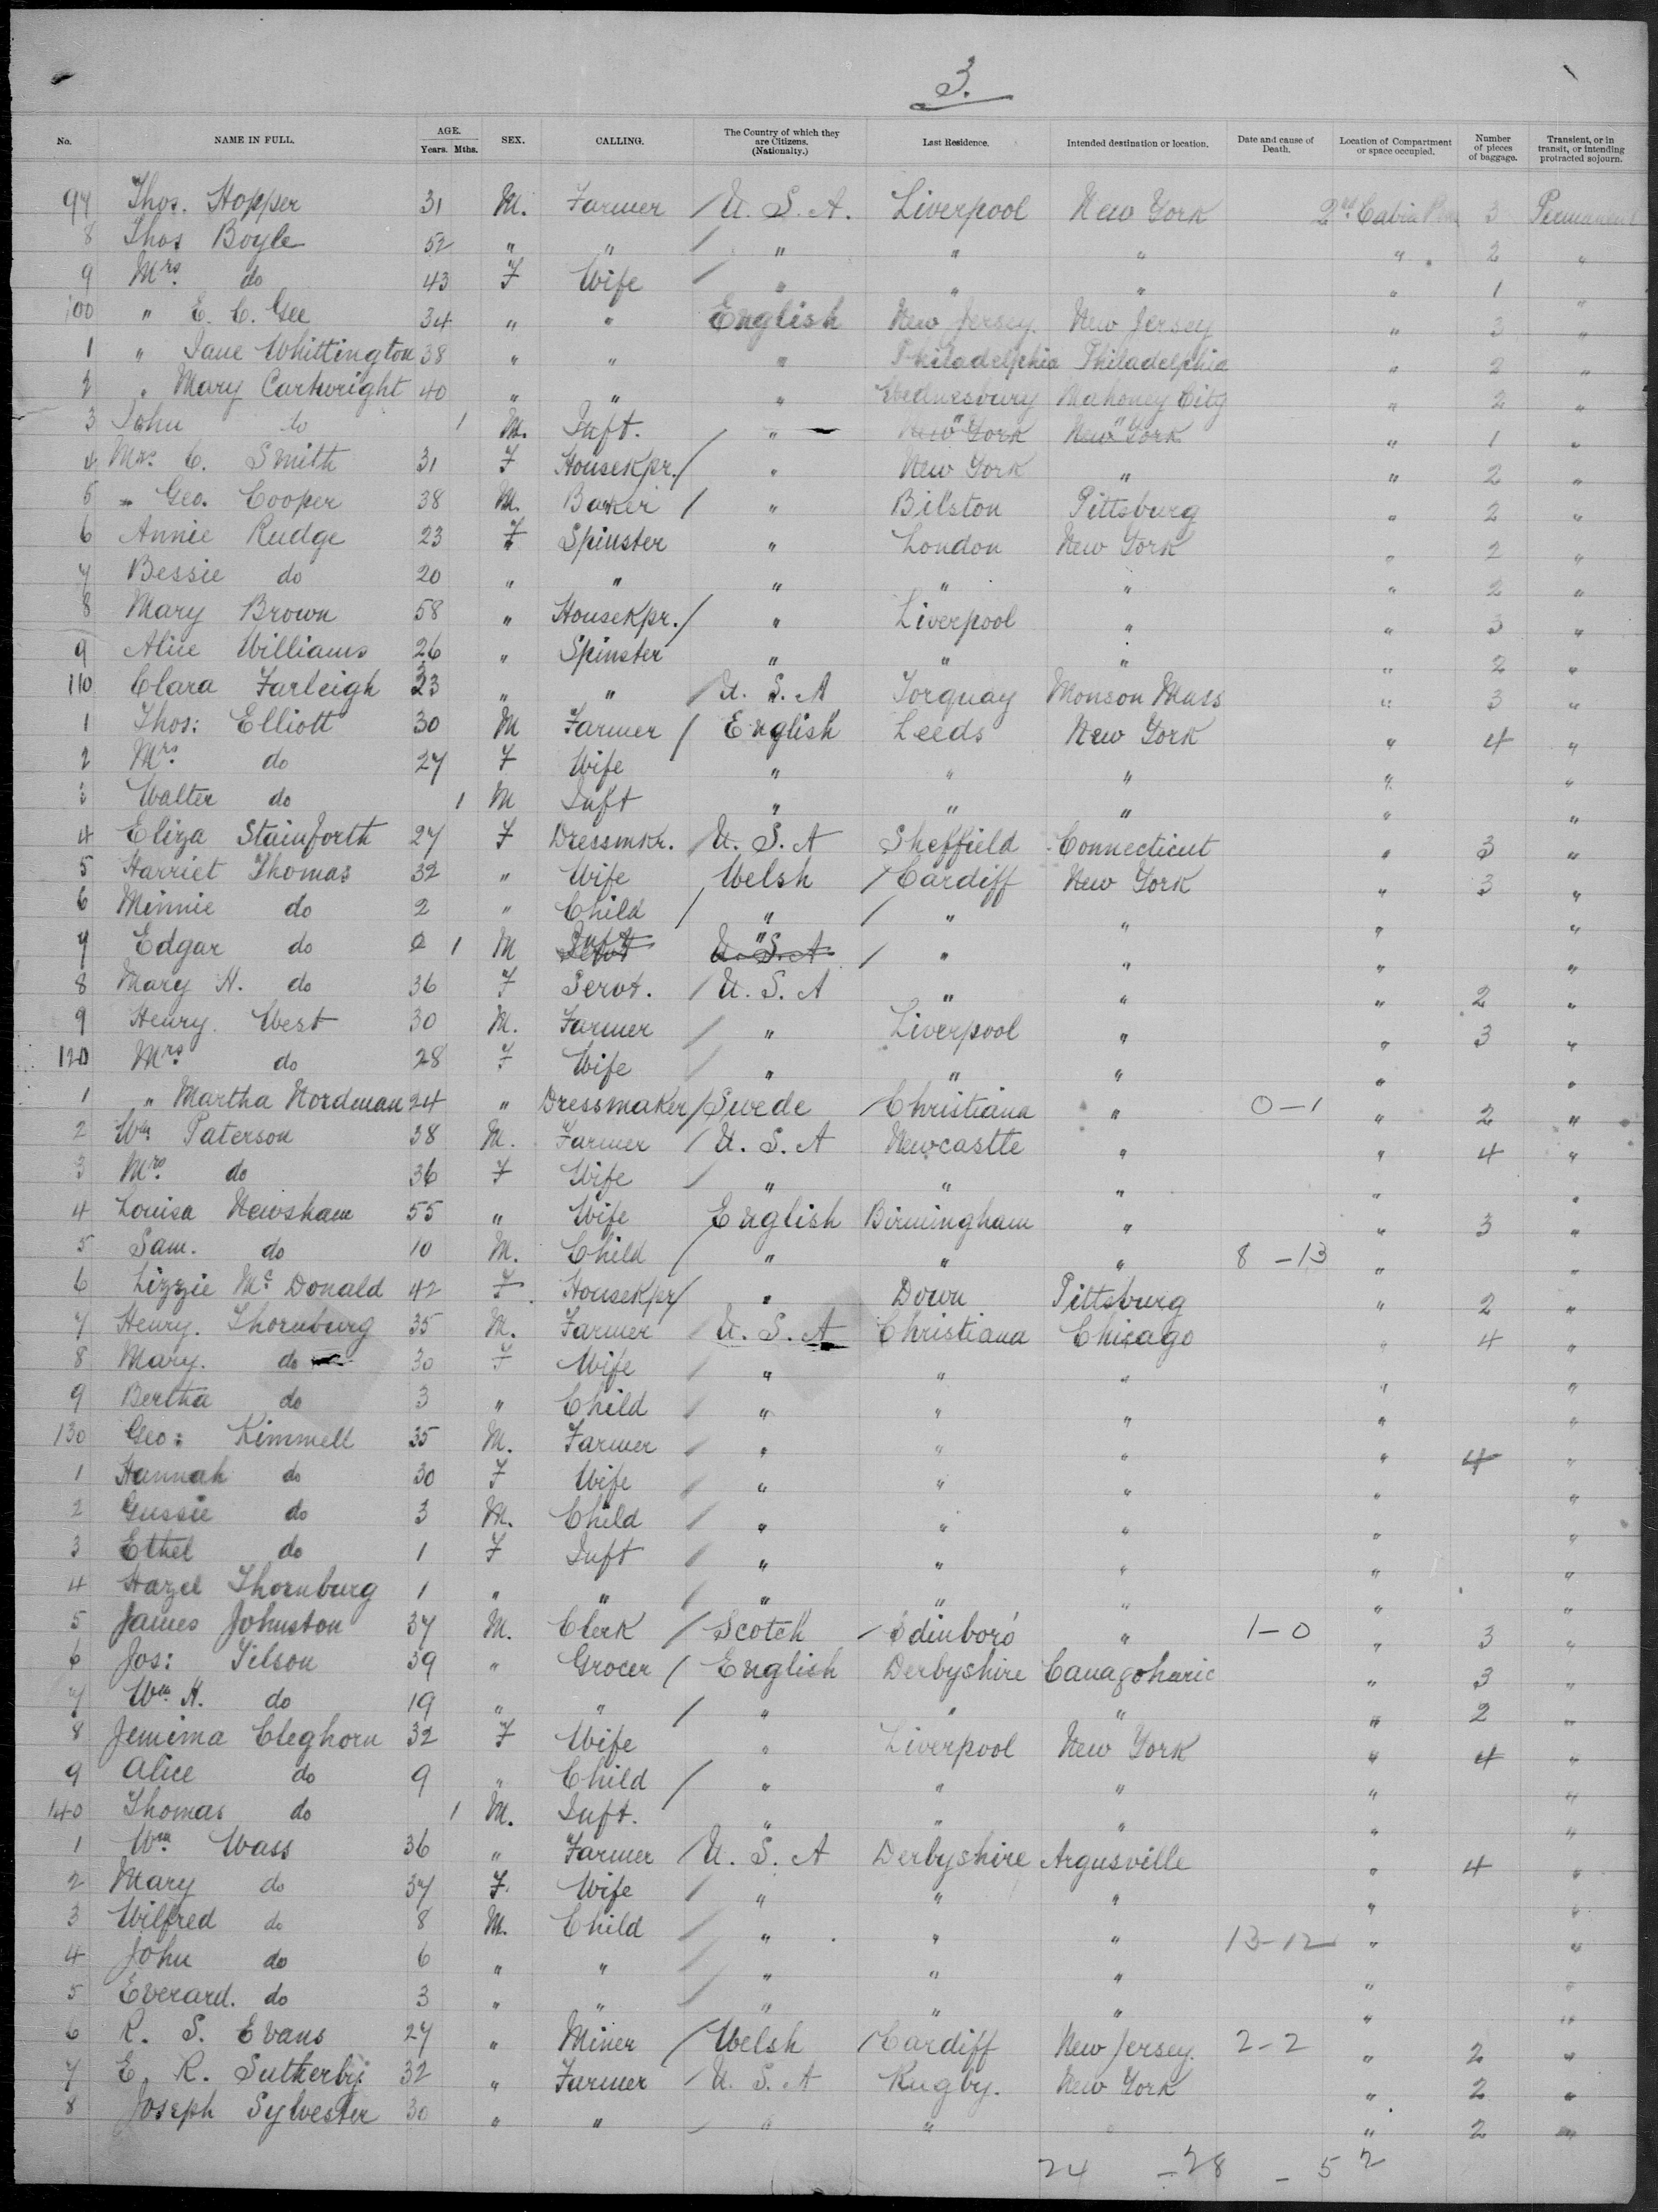 3.
No. NAME IN FULL. AGE. Years. Mths. SEX. CALLING. The Country of which they are Citizens. (Nationalty.) Last Residence. Intended destination or location. Date and cause of Death. Location of Compartment or space occupied. Number of pieces of baggage. Transient, or in transit, or intending protracted sojourn.
97 Thos. Hopper 31 M. Farmer / U. S. A. Liverpool New York 2nd Cabin 3 Permanent
8 Thos Boyle 52 " " / " " " " 2 "
9 Mrs. do 43 F Wife / " " " " 1 "
100 " E. C. Gee 34 " " English New Jersey. New Jersey " 3 "
1 " Jane Whittington 38 " " " Philadelphia Philadelphia " 2 "
2 " Mary Cartwright 40 " " " Wednesbury Mahoney City " 2 "
3 John do 1 M. Inft. / " " New York " New York " 1 "
4 Mrs. C. Smith 31 F Housekpr. / " New York " " 2 "
5 " Geo. Cooper 38 M. Baker / " Bilston Pittsburg " 2 "
6 Annie Rudge 23 F Spinster " London New York " 2 "
7 Bessie do 20 " " " " " " 2 "
8 Mary Brown 58 " Housekpr. / " Liverpool " " 3 "
9 Alice Williams 26 " Spinster " " " " 2 "
110 Clara Farleigh 23 " " / U. S. A Torquay Monson Mass " 3 "
1 Thos: Elliott 30 M Farmer / English Leeds New York " 4 "
2 Mrs. do 27 F Wife " " " " "
3 Walter do 1 M Inft " " " " "
4 Eliza Stainforth 27 F Dressmkr. / U. S. A Sheffield Connecticut " 3 "
5 Harriet Thomas 32 " Wife Welsh / Cardiff New York " 3 "
6 Minnie do 2 " Child / " / " " " "
7 Edgar do 1 M Inft " U. S. A / " " " "
8 Mary H. do 36 F Servt. / U. S. A " " " 2 "
9 Henry. West 30 M. Farmer / " Liverpool " " 3 "
120 Mrs. do 28 F Wife / " " " " "
1 " Martha Nordman 24 " Dressmaker / Swede / Christiana " 0-1 " 2 "
2 Wm Paterson 38 M. Farmer / U. S. A Newcastle " " 4 "
3 Mrs. do 36 F Wife / " " " " "
4 Louisa Newsham 55 " Wife English Birmingham " " 3 "
5 Sam. do 10 M. Child / " " " 8-13 " "
6 Lizzie Mc Donald 42 F Housekpr / " Down Pittsburg " 2 "
7 Henry. Thornburg 35 M. Farmer / U. S. A Christiana Chicago " 4 "
8 Mary. do 30 F Wife / " " " " "
9 Bertha do 3 " Child / " " " " "
130 Geo: Kimmell 35 M. Farmer / " " " " 4 "
1 Hannah do 30 F Wife / " " " " "
2 Gussie do 3 M. Child / " " " " "
3 Ethel do 1 F Inft / " " " " "
4 Hazel Thornburg 1 " " / " " " " "
5 James Johnston 37 M. Clerk / Scotch / Edinboro' " 1-0 " 3 "
6 Jos: Tilson 39 " Grocer / English Derbyshire Canagoharie " 3 "
7 Wm. H. do 19 " " / " " " " 2 "
8 Jemima Cleghorn 32 F Wife " Liverpool New York " 4 "
9 Alice do 9 " Child / " " " " "
140 Thomas do 1 M. Inft. " " " " "
1 Wm Wass 36 " Farmer / U. S. A Derbyshire Argusville " 4 "
2 Mary do 37 F. Wife / " " " " "
3 Wilfred do 8 M. Child / " " " 13-12 " "
4 John do 6 " " / " " " " "
5 Everard. do 3 " " / " " " " "
6 R. S. Evans 27 " Miner / Welsh / Cardiff New Jersey. 2-2 " 2 "
7 E. R. Sutherby 32 " Farmer / U. S. A Rugby. New York " 2 "
8 Joseph Sylvester 30 " " / " " " " 2 "
24 - 28 - 52